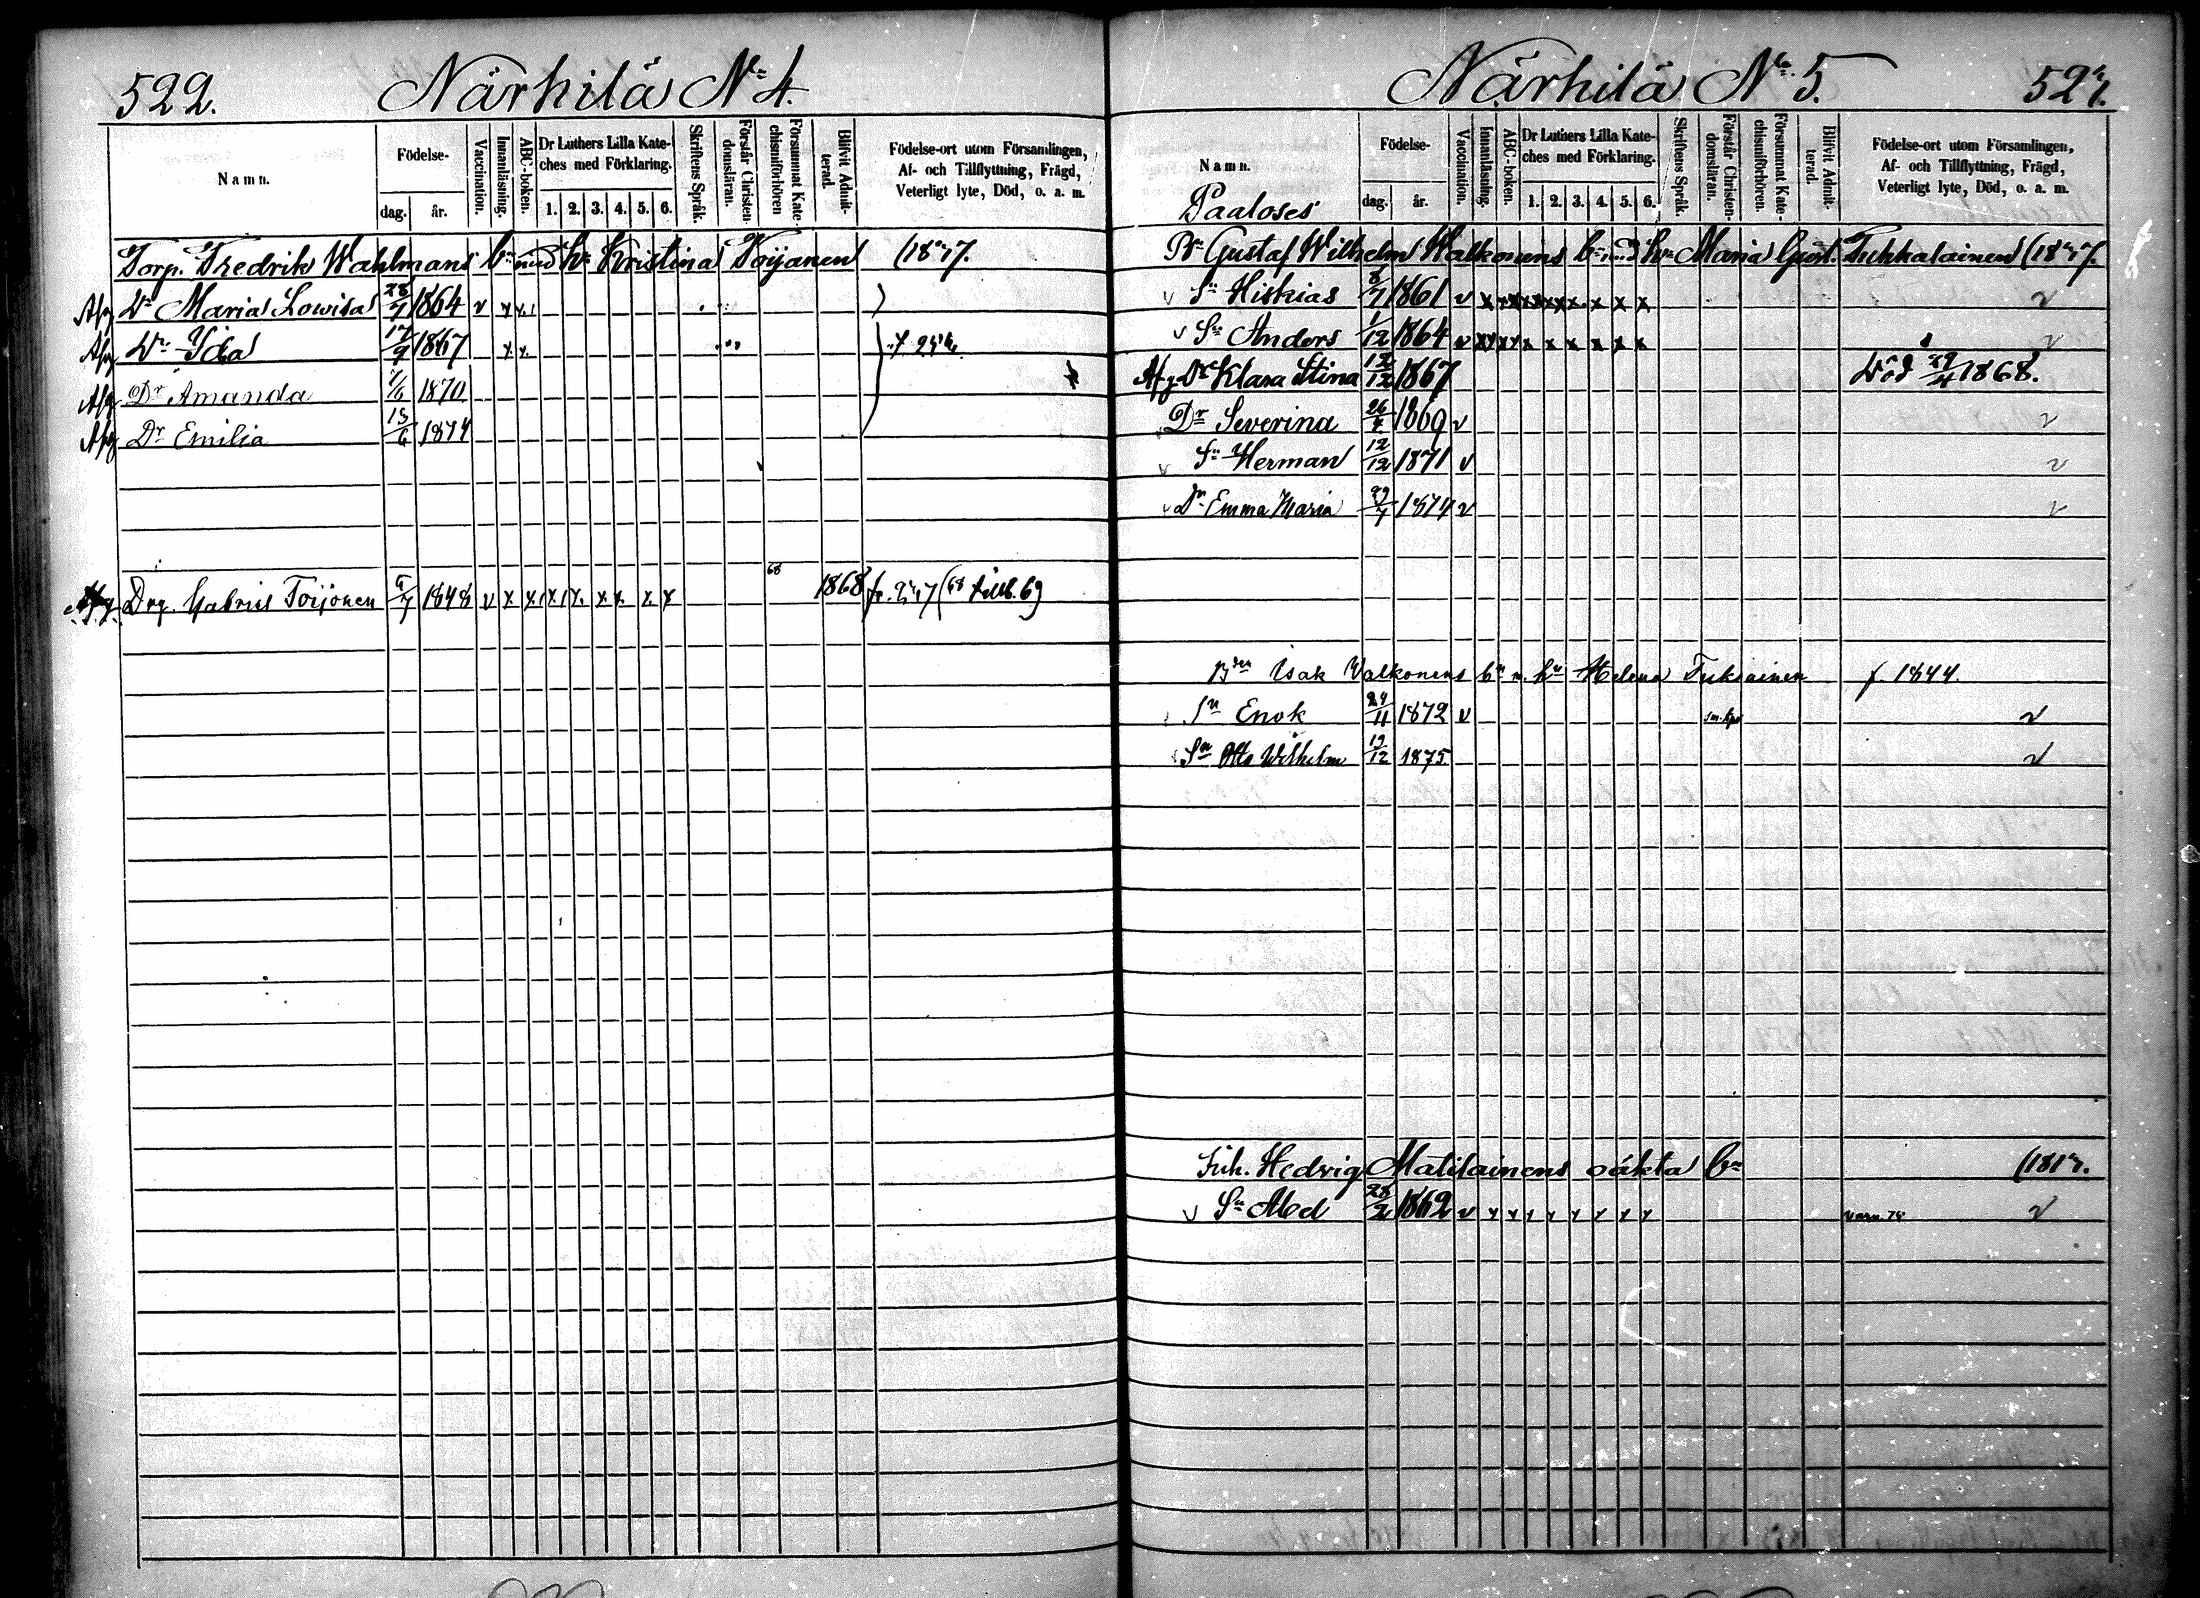 522. Närhilä No 4.
Namn. Födelse- dag. år. Vaccination. Innanläsning. ABC-boken. Dr Luthers Lilla Kateches med Förklaring. 1. 2. 3. 4. 5. 6. Skriftens Språk. Förstår Christendomsläran. Försummat Katechismiförhören Blifvit Admitterad. Födelse-ort utom Församlingen, Af- och Tillflyttning, Frägd, Veterligt lyte, Död, o. a. m.
Torp. Fredrik Wahlmans bn med hu Kristina Toijanen
Afg Dr Maria Lowisa 28/7 1864 v x x
Afg Dr Ida 17/9 1867 x x
Afg Dr Amanda 1870
Afg Dr Emilia 15/6 1874
Drg. Gabriel Toijonen 1848 v x x x x x x x x 68 1868
Närhilä No 5.
Namn. Födelse- dag. år. Vaccination. Innanläsning. ABC-boken. Dr Luthers Lilla Kateches med Förklaring. 1. 2. 3. 4. 5. 6. Skriftens Språk. Förstår Christendomsläran. Försummat Katechismiförhören. Blifvit Admitterad. Födelse-ort utom Församlingen, Af- och Tillflyttning, Frägd, Veterligt lyte, Död, o. a. m.
Paaloses
Bn Gustaf Wilhelm Walkonens bn med hu Maria Gust. Tukkalainen
v Sn Hiskias 8/7 1861 v x x x x x x x x x x v
v Sn Anders 1/12 1864 v x x x x x x x x x x v
Afg Dr Klara Stina 12/12 1867 Död 29/4 1868.
Dr Severina 1869 v v
v Sn Herman 12/12 1871 v v
v Dr Emma Maria 1874 v v
Bdn Isak Walkonens bn m. hu Helena f 1844.
Sn Enok 24/11 1872 v v
Sn Otto Wilhelm 19/12 1875 v
Inh. Hedvig Matilainens oäkta bn
v Sn Abel 28/2 1862 v x x x x x x x x v